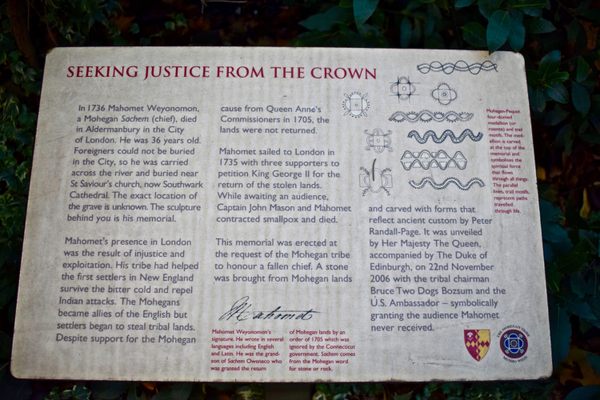 SEEKING JUSTICE FROM THE CROWN
In 1736 Mahomet Weyonomon,
a Mohegan Sachem (chief), died
in Aldermanbury in the City
of London. He was 36 years old.
Foreigners could not be buried
in the City, so he was carried
across the river and buried near
St Saviour's church, now Southwark
Cathedral. The exact location of
the grave is unknown. The sculpture
behind you is his memorial.
Mahomet's presence in London
was the result of injustice and
exploitation. His tribe had helped
the first settlers in New England
survive the bitter cold and repel
Indian attacks. The Mohegans
became allies of the English but
settlers began to steal tribal lands.
Despite support for the Mohegan
cause from Queen Anne's
Commissioners in 1705, the
lands were not returned.
Mahomet sailed to London in
1735 with three supporters to
petition King George II for the
return of the stolen lands.
While awaiting an audience,
Captain John Mason and Mahomet
contracted smallpox and died.
This memorial was erected at
the request of the Mohegan tribe
to honour a fallen chief. A stone
was brought from Mohegan lands
and carved with forms that
reflect ancient custom by Peter
Randall-Page. It was unveiled
by Her Majesty The Queen,
accompanied by The Duke of
Edinburgh, on 22nd November
2006 with the tribal chairman
Bruce Two Dogs Bozsum and the
U.S. Ambassador – symbolically
granting the audience Mahomet
never received.
Mohegan-Pequot
four-domed
medallion (or
rosettes) and trail
motifs. The medi-
effort is carved
at the top of the
memorial and
symbolises the
spiritual force
that flows
through all things.
The parallel
lines, trail motifs,
represent paths
travelled
through life.
Mahomet
Mahomet Weyonomon's
signature. He wrote in several
languages including English
and Latin. He was the grand-
son of Sachem Owaneco who
was granted the return
of Mohegan lands by an
order of 1705 which was
ignored by the Connecticut
government. Sachem comes
from the Mohegan word
for stone or rock.